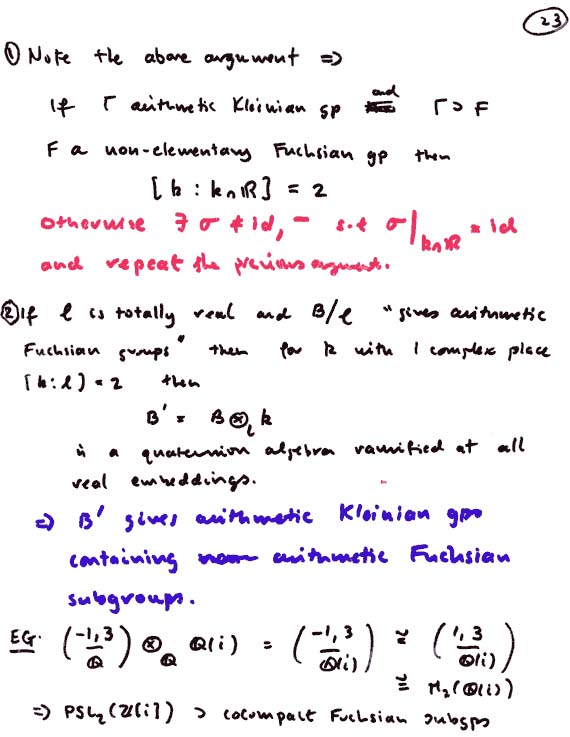 23
① Note the above argument ⇒
If Γ arithmetic Kleinian gp and Γ > F
F a non-elementary Fuchsian gp then
[k : k∩ℝ] = 2
otherwise ∃ σ ≠ id, – s.t σ|_{k∩ℝ} = id
and repeat the previous argument.
② If ℓ is totally real and B/ℓ "gives arithmetic
Fuchsian groups" then for k with 1 complex place
[k:ℓ] = 2 then
B' = B ⊗_ℓ k
is a quaternion algebra ramified at all
real embeddings.
⇒ B' gives arithmetic Kleinian gps
containing arithmetic Fuchsian
subgroups.
EG. (-1,3 / ℚ) ⊗_ℚ ℚ(i) = (-1,3 / ℚ(i)) ≅ (1,3 / ℚ(i))
≅ M₂(ℚ(i))
⇒ PSL₂(ℤ[i]) > cocompact Fuchsian subgps